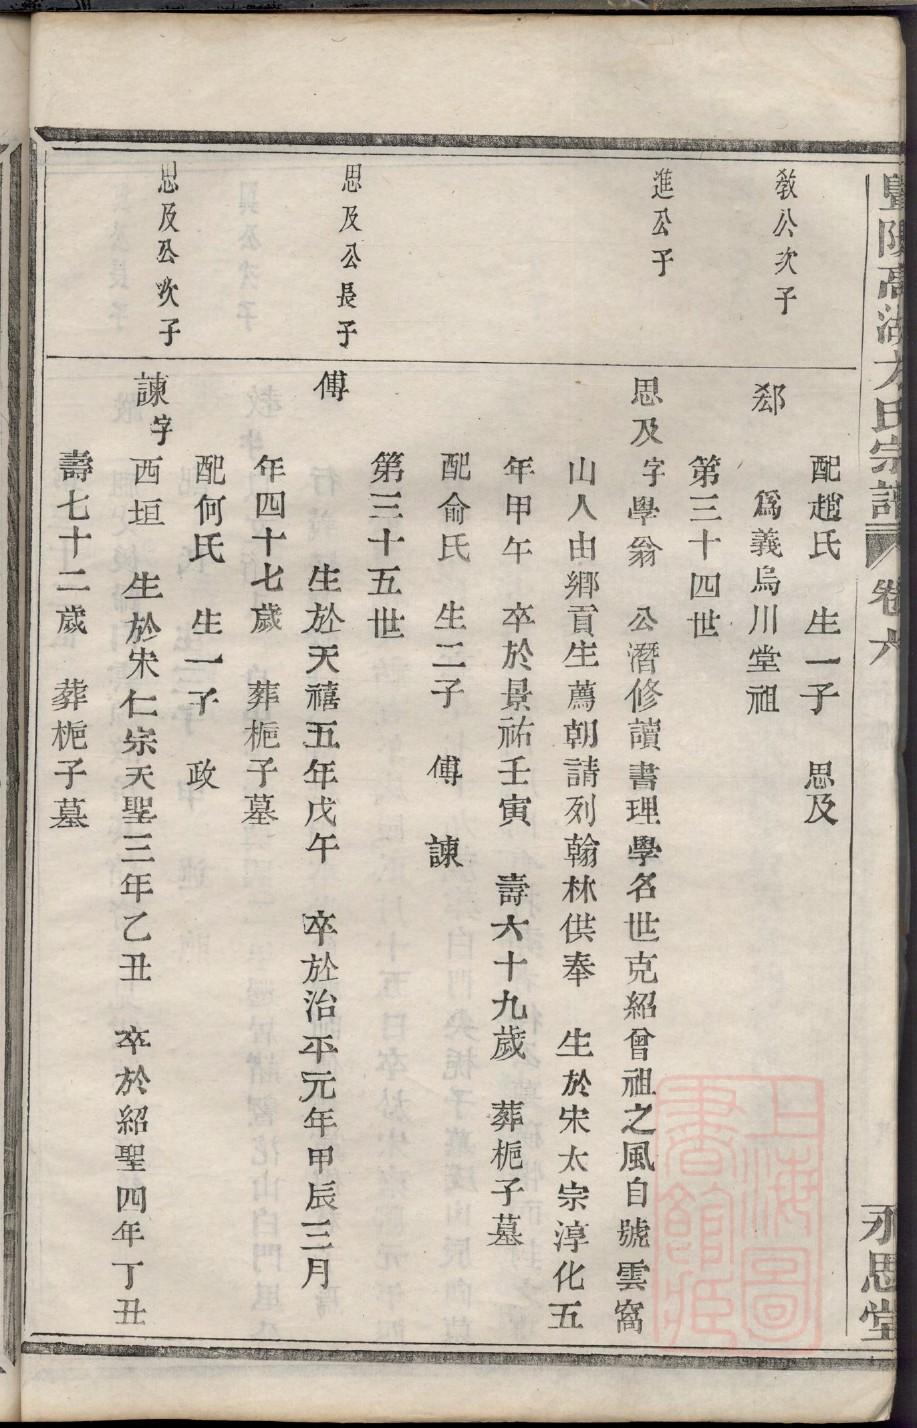 暨陽高湖方氏宗譜 卷六 永思堂
配趙氏 生一子 思及
教公次子
郄 爲義烏川堂祖
第三十四世
進公子
思及 字學翁 公潛修讀書理學名世克紹曾祖之風自號雲窩
山人由鄉貢生薦朝請列翰林供奉 生於宋太宗淳化五
年甲午 卒於景祐壬寅 壽六十九歲 葬梔子墓
配俞氏 生二子 傅 諫
第三十五世
思及公長子
傅 生於天禧五年戊午 卒於治平元年甲辰三月
年四十七歲 葬梔子墓
配何氏 生一子 政
思及公次子
諫 字西垣 生於宋仁宗天聖三年乙丑 卒於紹聖四年丁丑
壽七十二歲 葬梔子墓
上海圖書館藏